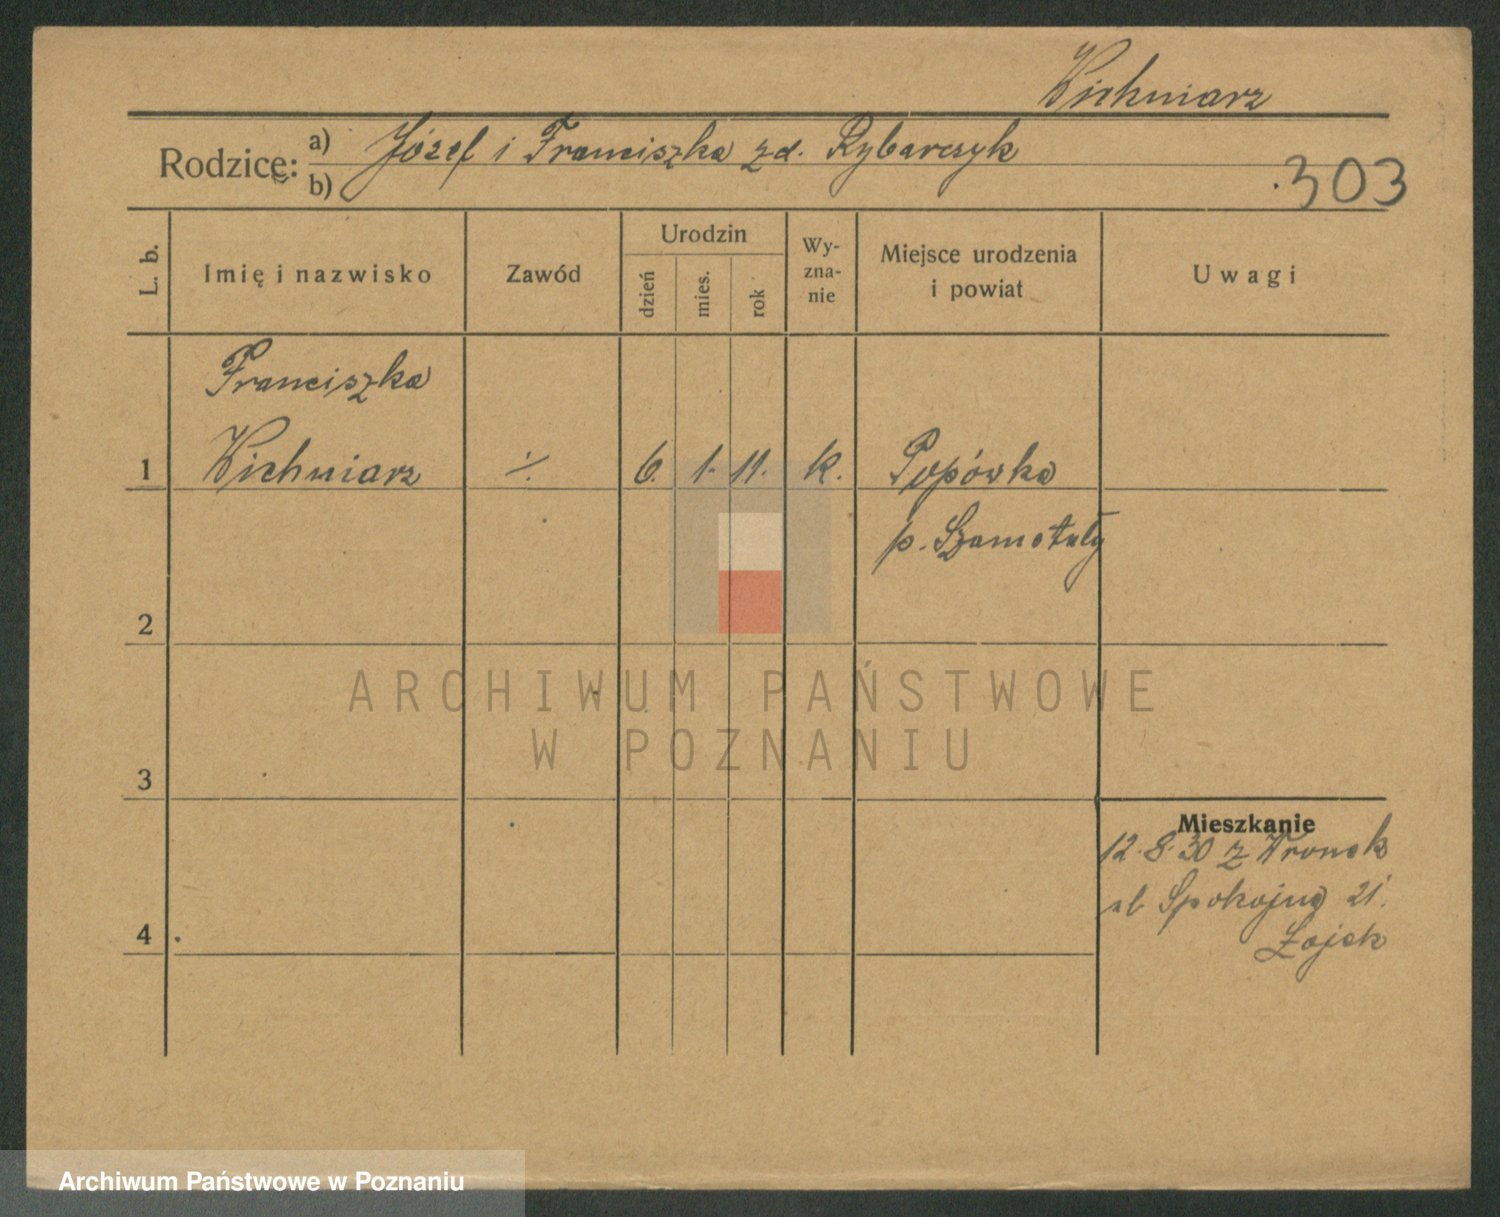 Wichniarz
Rodzice: a) Józef i Franciszka zd. Rybarczyk
b)
303
L. b.
Imię i nazwisko
Zawód
Urodzin
dzień
mies.
rok
Wy-
zna-
nie
Miejsce urodzenia
i powiat
Uwagi
Franciszka
1 Wichniarz ·/. 6. 1. 11. k. Popówka
p. Szamotuły
2
3
4
Mieszkanie
12.8.30 z Wronek
ul Spokojna 21.
Zająk
ARCHIWUM PAŃSTWOWE
W POZNANIU
Archiwum Państwowe w Poznaniu